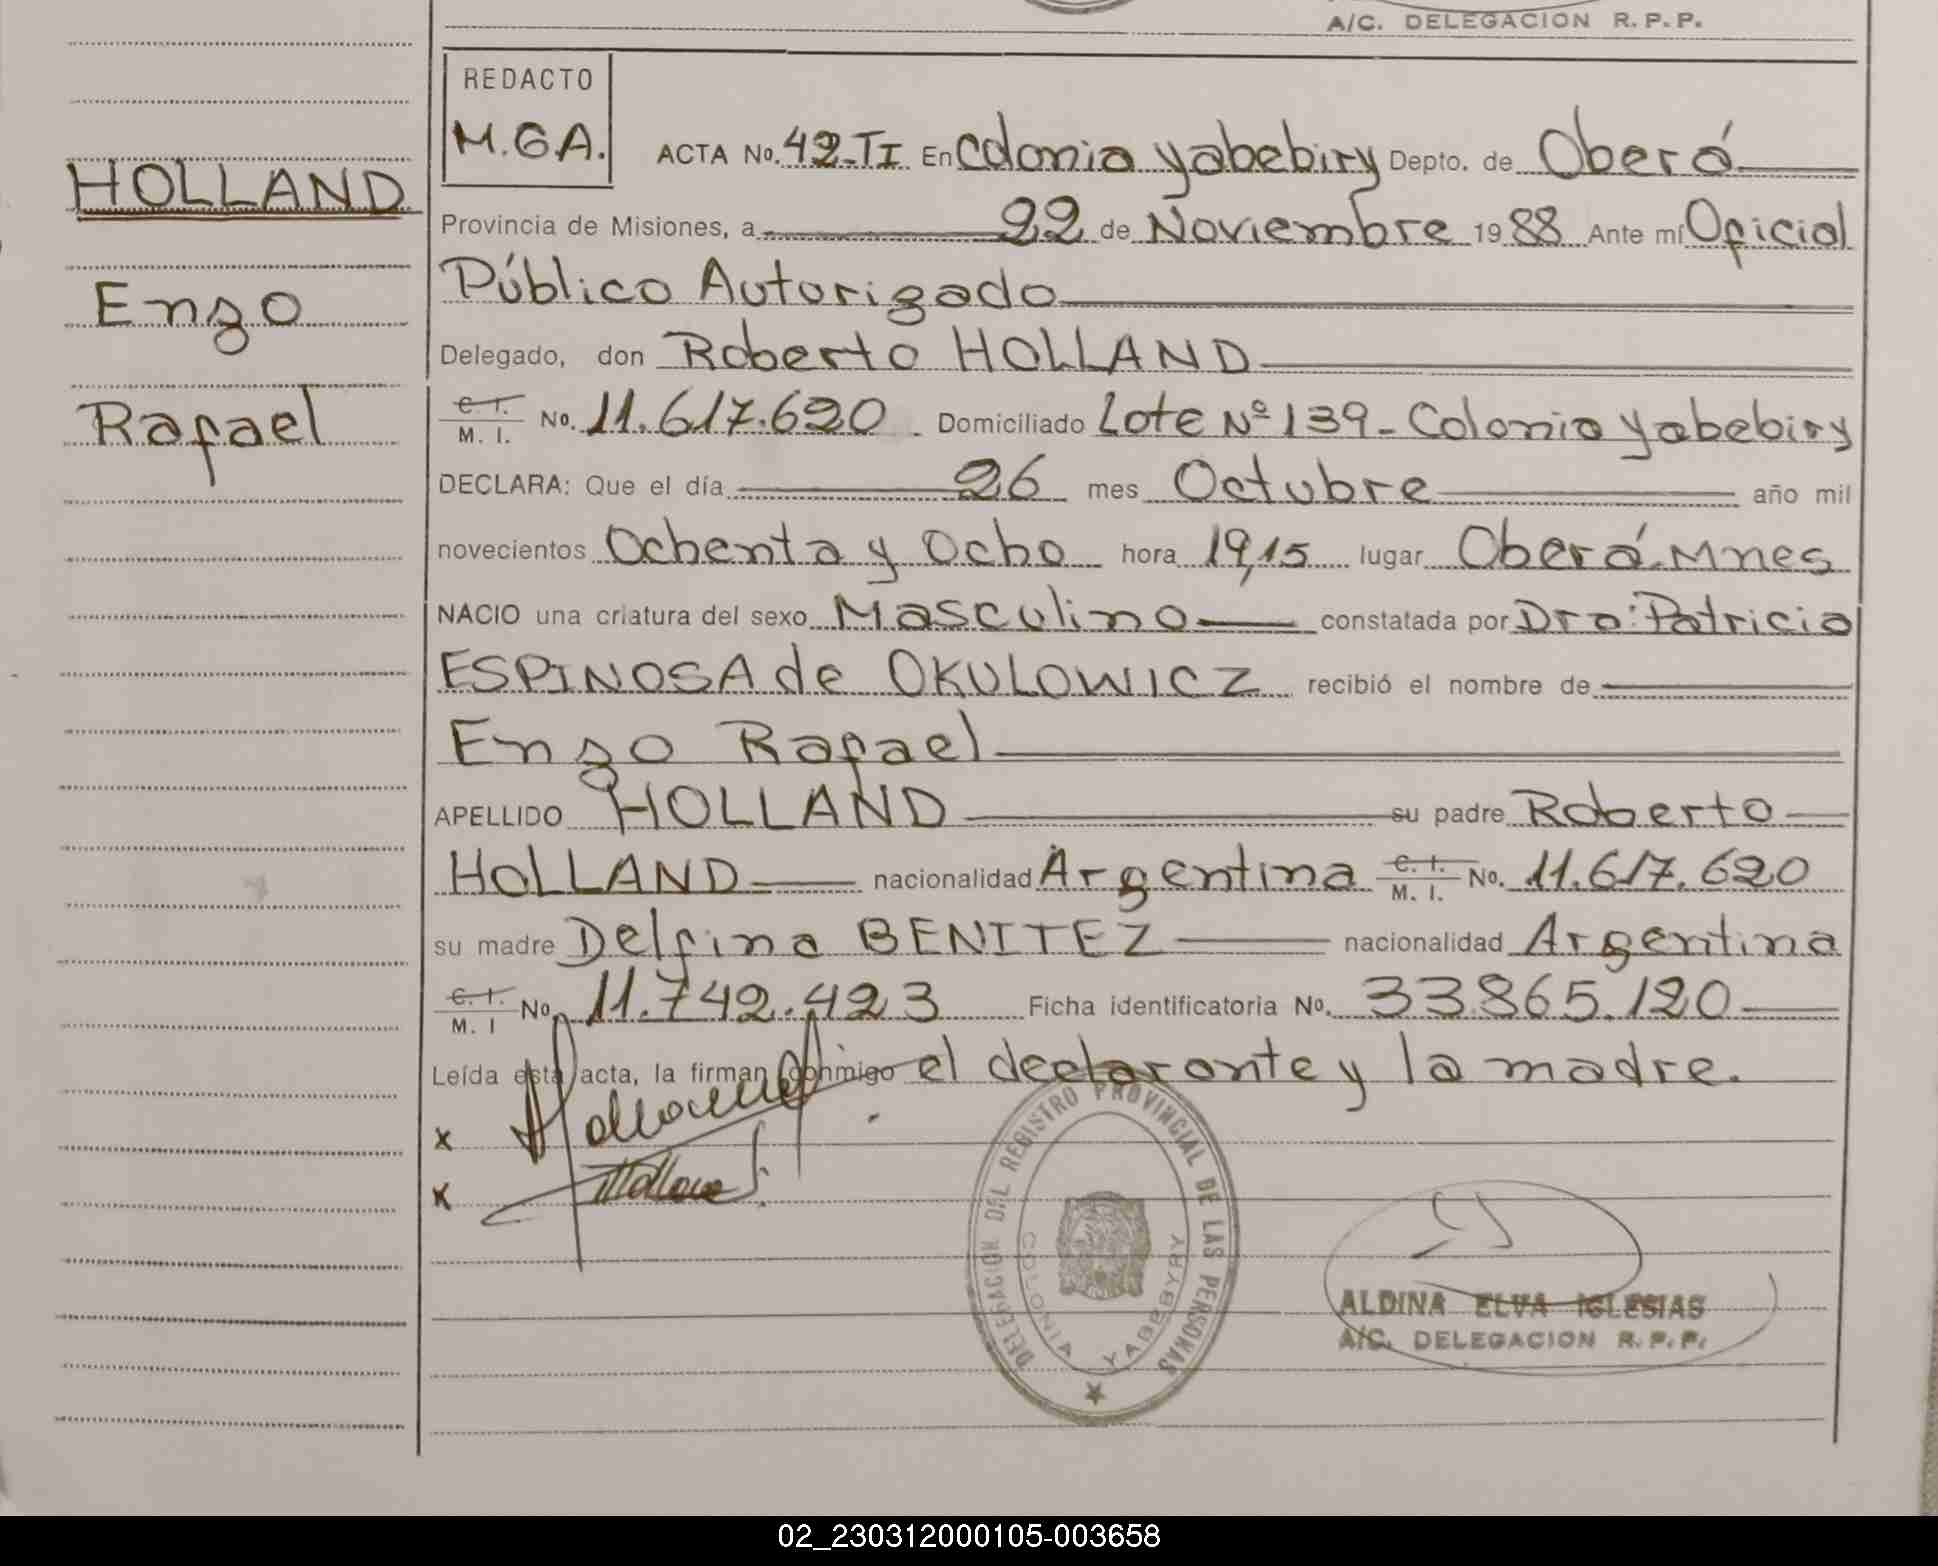 A/C. DELEGACION R.P.P.
REDACTO
M.G.A.
HOLLAND
Enzo
Rafael
ACTA No. 42-TI En Colonia Yabebiry Depto. de Oberá
Provincia de Misiones, a 22 de Noviembre 1988 Ante mí Oficial
Público Autorizado
Delegado, don Roberto HOLLAND
C. I. M. I. No. 11.617.620 Domiciliado Lote Nº 139- Colonia Yabebiry
DECLARA: Que el día 26 mes Octubre año mil
novecientos Ochenta y Ocho hora 19,15 lugar Oberá-Mnes
NACIO una criatura del sexo Masculino constatada por Dra: Patricia
ESPINOSA de OKULOWICZ recibió el nombre de
Enzo Rafael
APELLIDO HOLLAND su padre Roberto
HOLLAND nacionalidad Argentina C. I. M. I. No. 11.617.620
su madre Delfina BENITEZ nacionalidad Argentina
C. I. M. I No. 11.742.423 Ficha identificatoria No. 33.865.120
Leída esta acta, la firman conmigo el declarante y la madre.
x
x
DELEGACION DEL REGISTRO PROVINCIAL DE LAS PERSONAS
COLONIA YABEBYRY
ALDINA ELVA IGLESIAS
A/C. DELEGACION R.P.P.
02_230312000105-003658